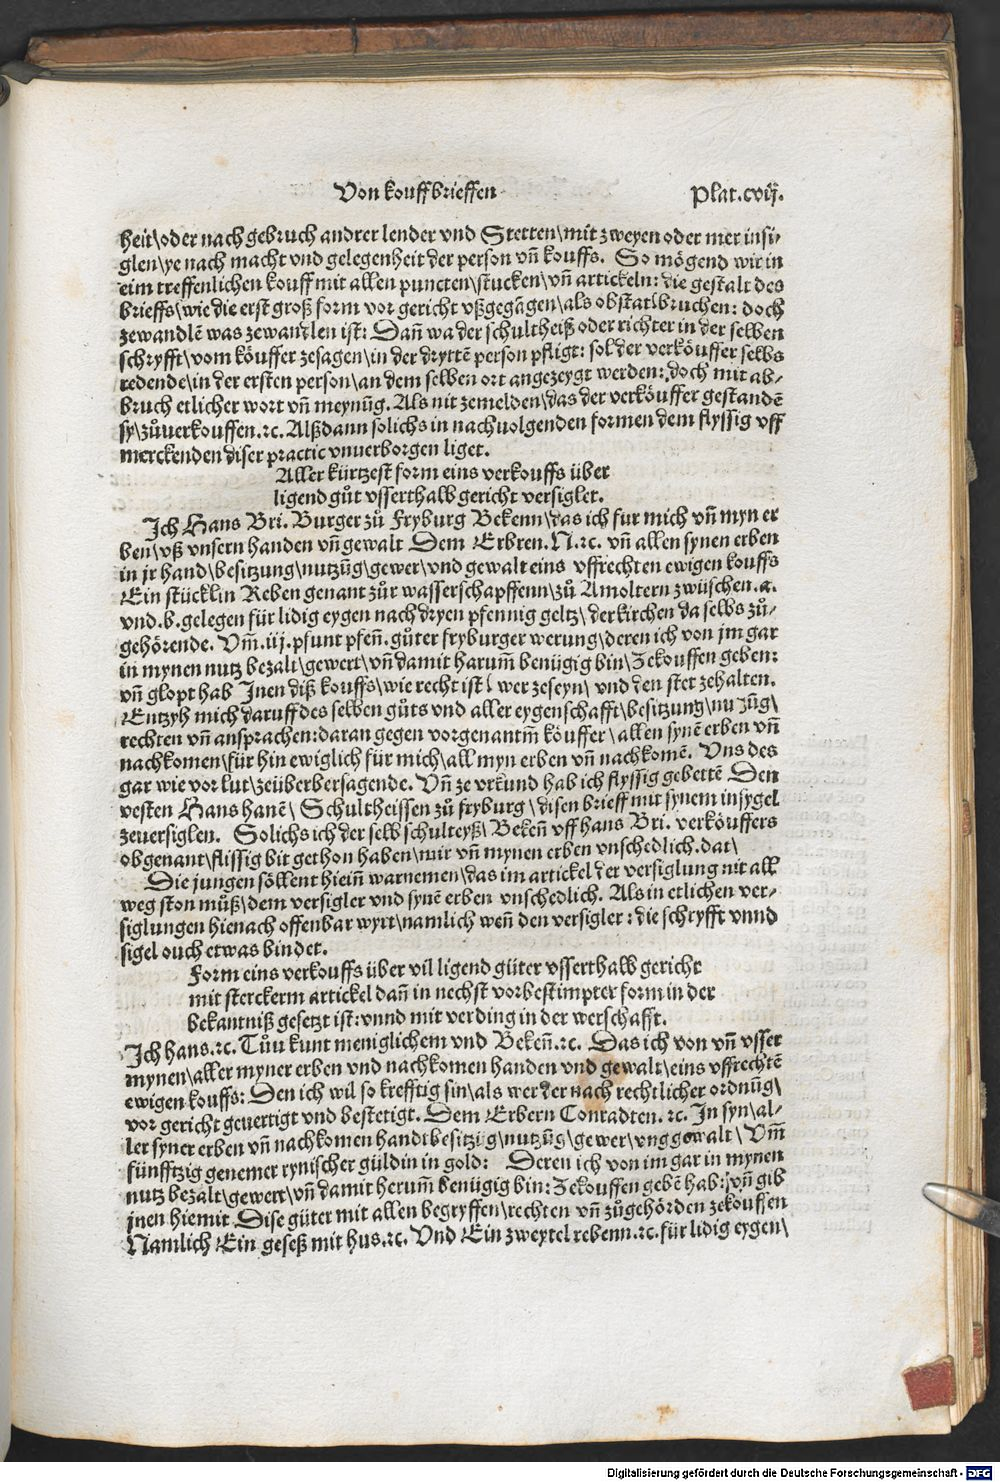 Von kouffbrieffen
Plat.cvij.
heit\oder nach gebruch andrer lender vnd Stetten\mit zweyen oder mer insi⸗
glen\ye nach macht vnd gelegenheit der person vn̄ kouffs. So mögend wir in
eim treffenlichen kouff mit allen puncten\stucken\vn̄ artickeln: die gestalt des
brieffs\wie die erst groß form vor gericht vßgegāgen\als obstat\bruchen: doch
zewandlē was zewandlen ist: Dan̄ wa der schultheiß oder richter in der selben
schryfft\vom köuffer zesagen\in der dryttē person pfligt: sol der verköuffer selbs
redende\in der ersten person\an dem selben ort angezeygt werden: doch mit ab⸗
bruch etlicher wort vn̄ meynūg. Als nit zemelden\das der verköuffer gestandē
sy\zůuerkouffen.ꝛc. Alßdann solichs in nachuolgenden formen dem flyssig vff
merckenden diser practic vnuerborgen liget.
Aller kürtzest form eins verkouffs über
ligend gůt vsserthalb gericht versiglet.
Ich Hans Bri. Burger zů Fryburg Bekenn\das ich fur mich vn̄ myn er
ben\vß vnsern handen vn̄ gewalt Dem Erbren. N.ꝛc. vn̄ allen synen erben
in jr hand\besitzung\nutzūg\gewer\vnd gewalt eins vffrechten ewigen kouffs
Ein stücklin Reben genant zůr wasserschapffenn\zů Amoltern zwüschen.a.
vnd.b.gelegen für lidig eygen nach dryen pfennig geltz\der kirchen da selbs zů⸗
gehörende. Vm̄.iij.pfunt pfen̄.gůter fryburger werung\deren ich von jm gar
in mynen nutz bezalt\gewert\vn̄ damit harum̄ benügig bin\Zekouffen geben:
vn̄ glopt hab Inen diß kouffs\wie recht ist\ wer zeseyn\ vnd den stet zehalten.
Entzyh mich daruff des selben gůts vnd aller eygenschafft\besitzung\nutzūg\
rechten vn̄ ansprachen:daran gegen vorgenantm̄ köuffer\allen synē erben vn̄
nachkomen\für hin ewiglich für mich\all myn erben vn̄ nachkomē. Vns des
gar wie vor lut\zeüberbersagende. Vn̄ ze vrkund hab ich flyssig gebettē Den
vesten Hans hanē\ Schultheissen zů fryburg\disen brieff mit synem insygel
zeuersiglen. Solichs ich der selb schulteyß\Beken̄ vff hans Bri. verköuffers
obgenant\flissig bit gethon haben\mir vn̄ mynen erben vnschedlich.dat\
Die jungen söllent hiein̄ warnemen\das im artickel der versiglung nit all
weg ston můß\dem versigler vnd synē erben vnschedlich. Als in etlichen ver⸗
siglungen hienach offenbar wyrt\namlich wen̄ den versigler: die schryfft vnnd
sigel ouch etwas bindet.
Form eins verkouffs über vil ligend güter vsserthalb gericht
mit sterckerm artickel dan̄ in nechst vorbestimpter form in der
bekantniß gesetzt ist:vnnd mit verding in der werschafft.
Ich hans.ꝛc. Tůu kunt meniglichem vnd Beken̄.ꝛc. Das ich von vn̄ vsser
mynen\aller myner erben vnd nachkomen handen vnd gewalt\eins vffrechtē
ewigen kouffs: Den ich wil so krefftig sin\als wer der nach rechtlicher ordnūg\
vor gericht geuertigt vnd bestetigt. Dem Erbern Conradten. ꝛc. In syn\al⸗
ler syner erben vn̄ nachkomen handt besitzūg\nutzūg\gewer\vnggewalt\ Vm̄
fünfftzig genemer rynischer güldin in gold: Deren ich von im gar in mynen
nutz bezalt\gewert\vn̄ damit herum̄ benügig bin: Zekouffen gebē hab: vn̄ gib
jnen hiemit Dise güter mit allen begryffen\rechten vn̄ zůgehörden zekouffen
Namlich Ein geseß mit hus.ꝛc. Vnd Ein zweytel rebenn.ꝛc.für lidig eygen\
Digitalisierung gefördert durch die Deutsche Forschungsgemeinschaft - DFG